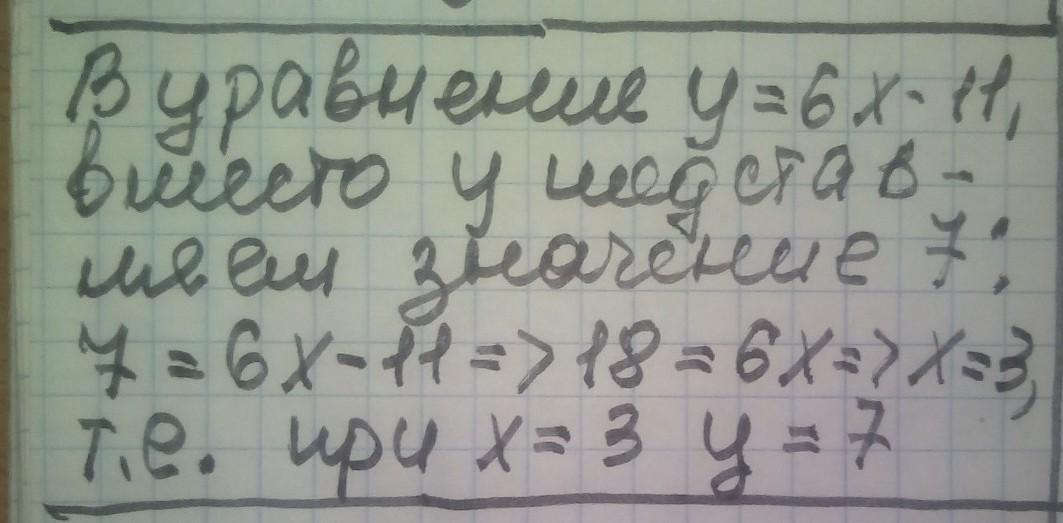 В уравнение y=6x-11,
вместо y подстав-
ляем значение 7:
7=6x-11=>18=6x=>x=3,
т.е. при x=3 y=7